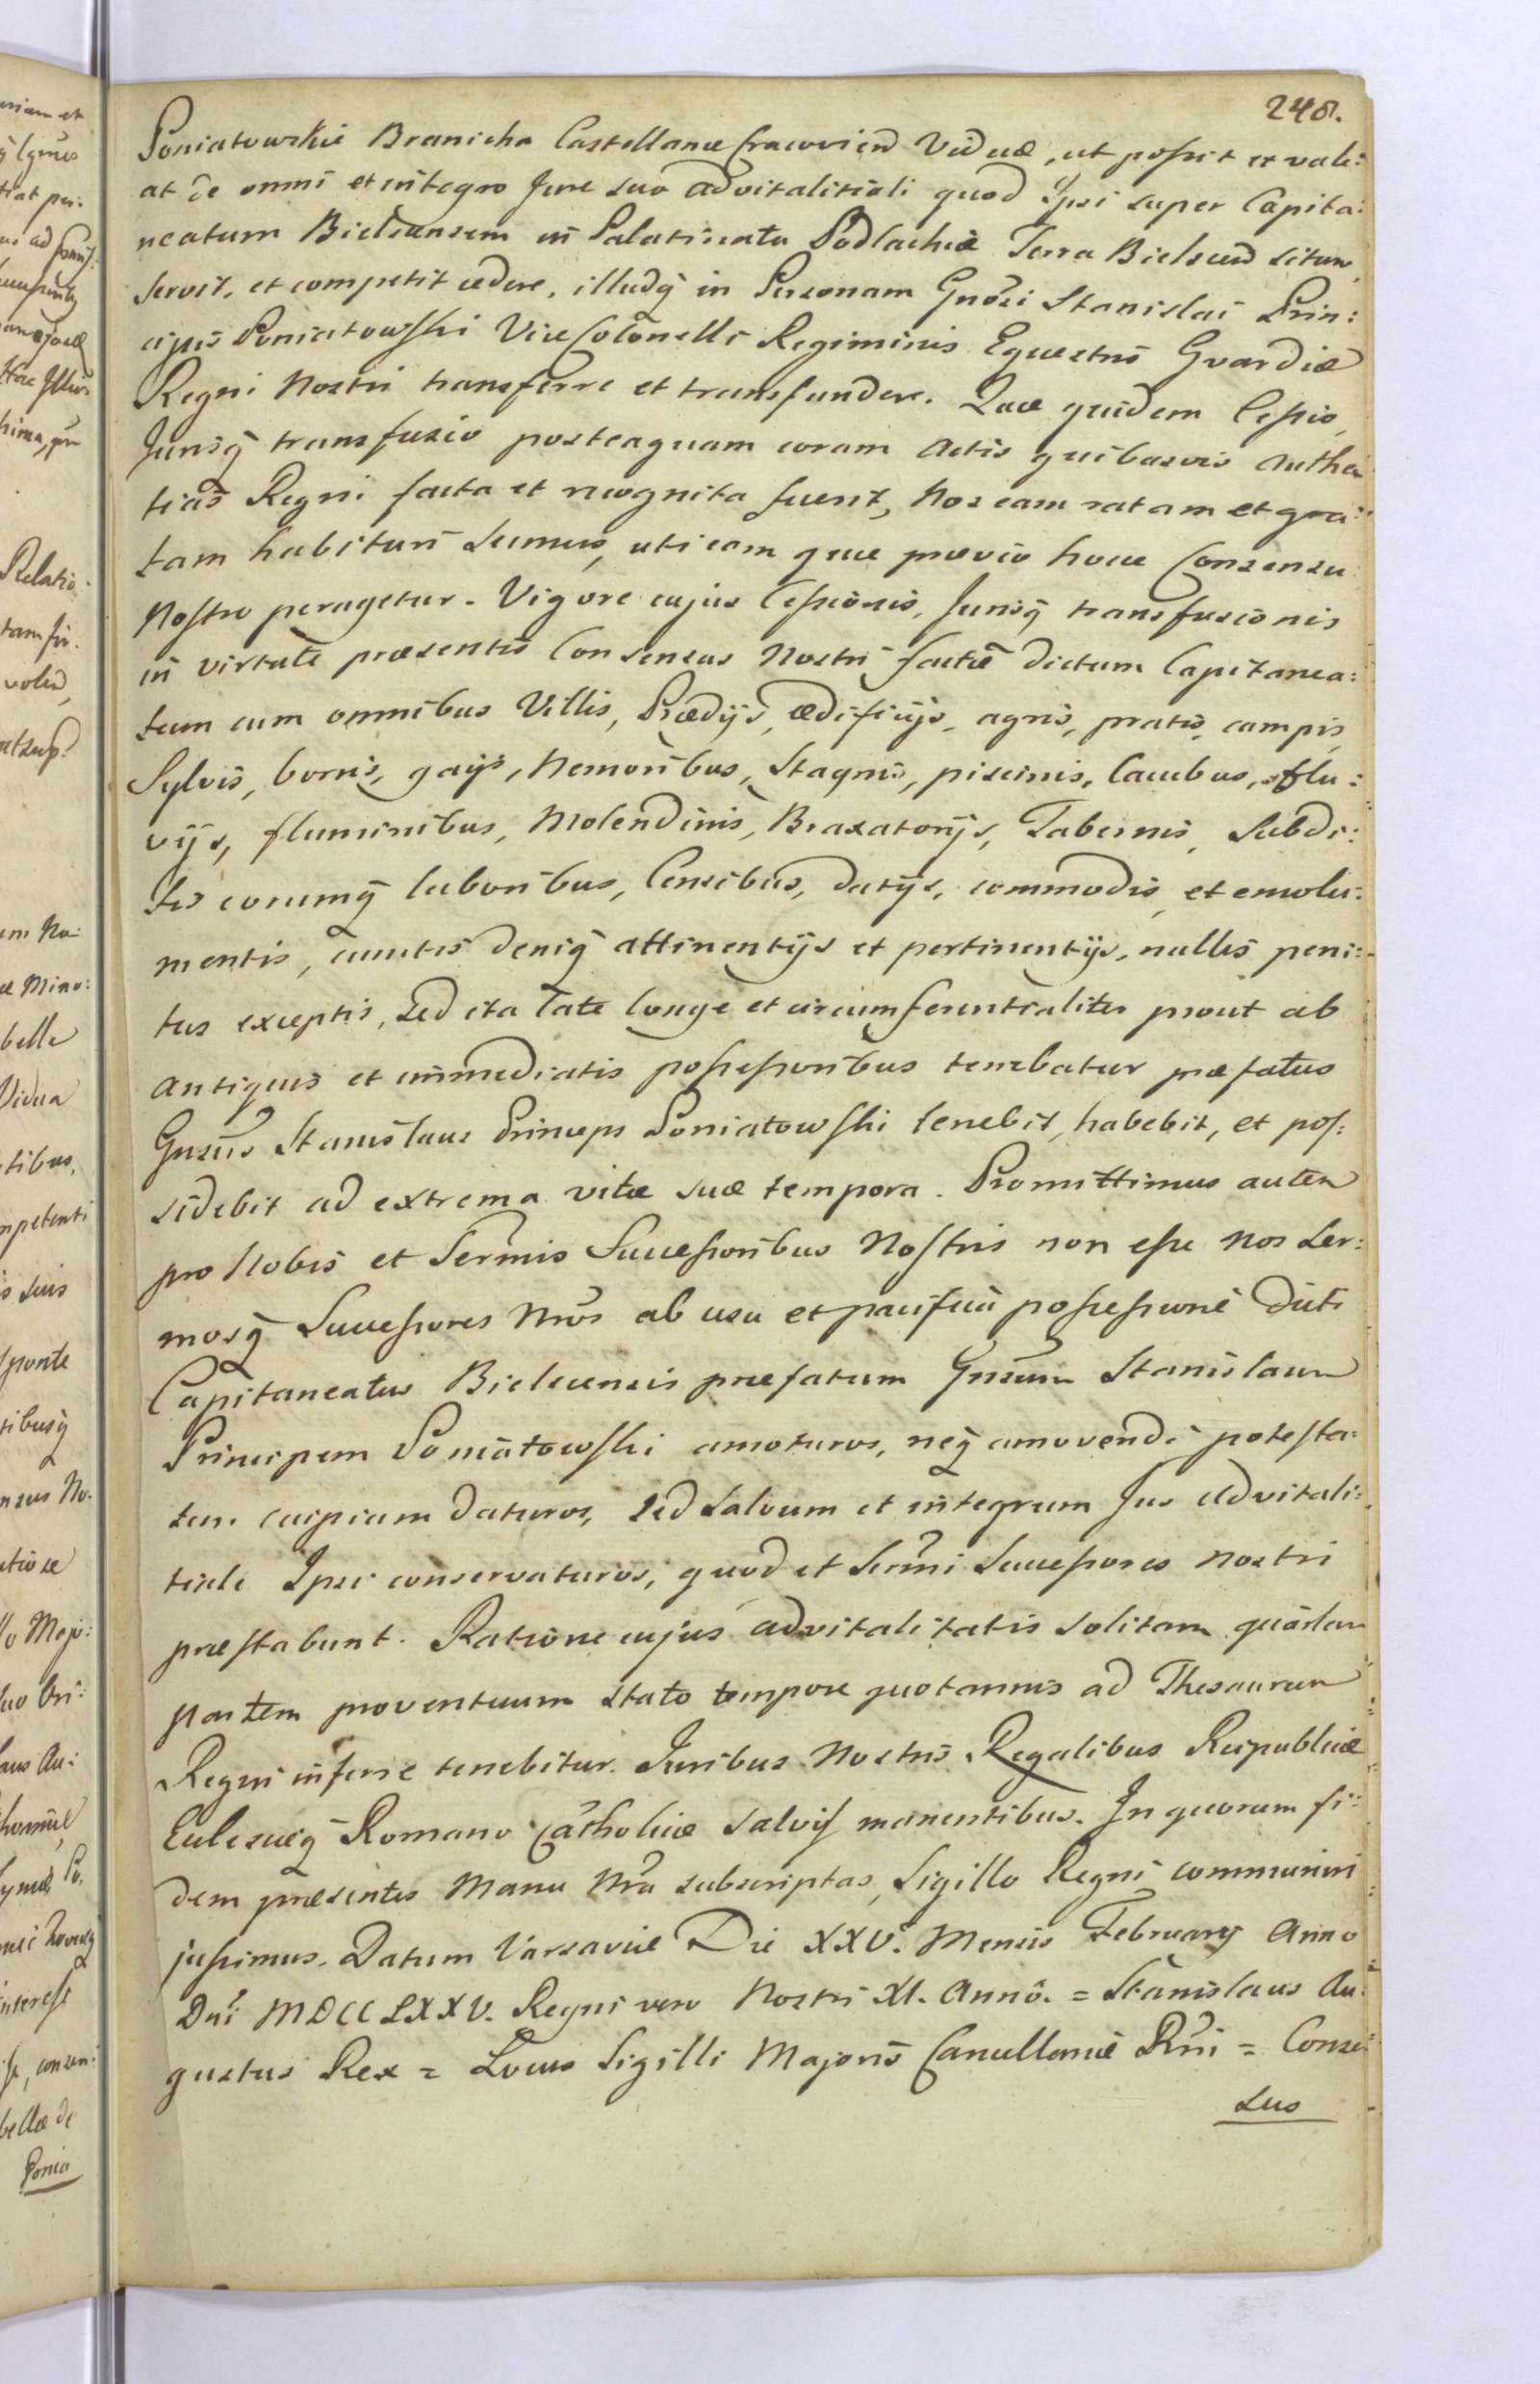 248.
Poniatowskie Branicka Castellanæ Cracovień Viduæ, ut possit et vale:
at de omni et integro Jure suo advitalitiali quod Ipsi super Capita:
neatum Bielscensem in Palatinatu Podlachiæ Terra Bielsceń situm
servit, et competit cedere, illudq̃ in Personam Gnõsi Stanislai Prin:
cipis Poniatowski Vice Colonelli Regiminis Equestris Gvardiæ
Regni Nostri transferre et transfundere. Quæ quidem Cessio,
Jurisq̃ transfusio posteaquam coram Actis quibusvis Authen
ticis Regni facta et recognita fuerit, Nos eam ratam et gra:
tam habituri sumus, uti eam quæ prævio hocce Consensu
Nostro peragetur. Vigore cujus Cessionis, Jurisq̃ transfusionis
in virtute præsentis Consensus Nostri factæ dictum Capitanea:
tum cum omnibus Villis, Prædijs, ædificijs, agris, pratis, campis,
Sylvis, borris, gays, Nemoribus, Stagnis, piscinis, lacubus, flu:
vijs, fluminibus, Molendinis, Braxatorijs, Tabernis, Subdi:
tis eorumq̃ laboribus, Censibus, datijs, commodis, et emolu:
mentis, cunctis deniq̃ attinentijs et pertinentijs, nullis peni:
tus exceptis, sed ita late longe et circumferentialiter prout ab
antiquis et immediatis possessoribus tenebatur præfatus
Gnsũs Stanislaus Princeps Poniatowski tenebit, habebit, et pos:
sidebit ad extrema vitæ suæ tempora. Promittimus autem
pro Nobis et Serm̃is Successoribus Nostris non esse nos Ser:
mosq̃ Successores Nr̃os ab usu et pacifica possessione dicti
Capitaneatus Bielscensis præfatum Gnsũm Stanislaum
Principem Poniatowski amoturos, neq̃ amovendi potesta:
tem cuipiam daturos, sed salvum et integrum Jus Advitali:
tiale Ipsi conservaturos, quod et Serm̃i Successores Nostri
præstabunt. Ratione cujus advitalitatis solitam quartam
partem proventuum stato tempore quotannis ad Thesaurum
Regni inferre tenebitur. Juribus Nostris Regalibus Reipublicæ
Ecclesiæq̃ Romano Catholicæ salvis manentibus. In quorum fi:
dem præsentes Manu Nr̃a subscriptas, Sigillo Regni communiri
jussimus. Datum Varsaviæ Die XXV. Mensis February Anno
Dnĩ MDCCLXXV. Regni vero Nostri XI. Anno. = Stanislaus Au:
gustus Rex = Locus Sigilli Majoris Cancellariæ Rñi = Consen
sus